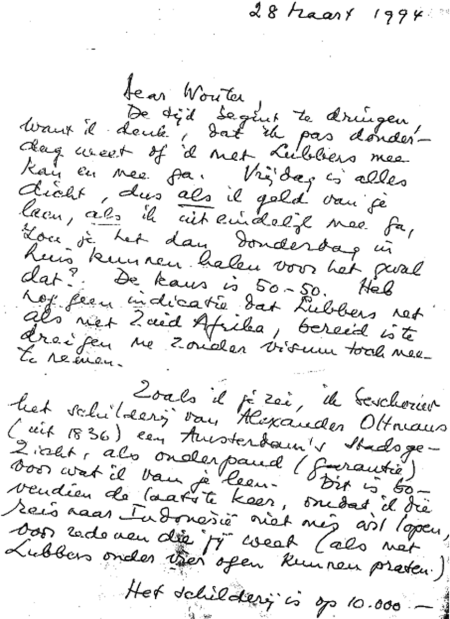 28 Maart 1994
Dear Wouter,
De tijd begint te dringen,
want ik denk, dat ik pas donder-
dag weet of ik met Lubbers mee
kan en mee ga. Vrijdag is alles
dicht, dus als ik geld van je
leen, als ik uiteindelijk mee ga,
Zou je het dan donderdag in
huis kunnen halen voor het geval
dat? De kans is 50-50. Heb
nog geen indicatie dat Lubbers net
als met Zuid Afrika, bereid is te
dreigen me zonder visum toch mee-
te nemen.
Zoals ik je zei, ik beschouw
het schilderij van Alexander Oltmans
(uit 1836) een Amsterdam's Stadsge-
zicht, als onderpand (garantie)
voor wat ik van je leen. Dit is bo-
vendien de laatste keer, omdat ik die
reis naar Indonesië niet mis wil lopen,
voor redenen die jij weet (als met
Lubbers onder vier ogen kunnen praten.)
Het schilderij is op 10.000 —